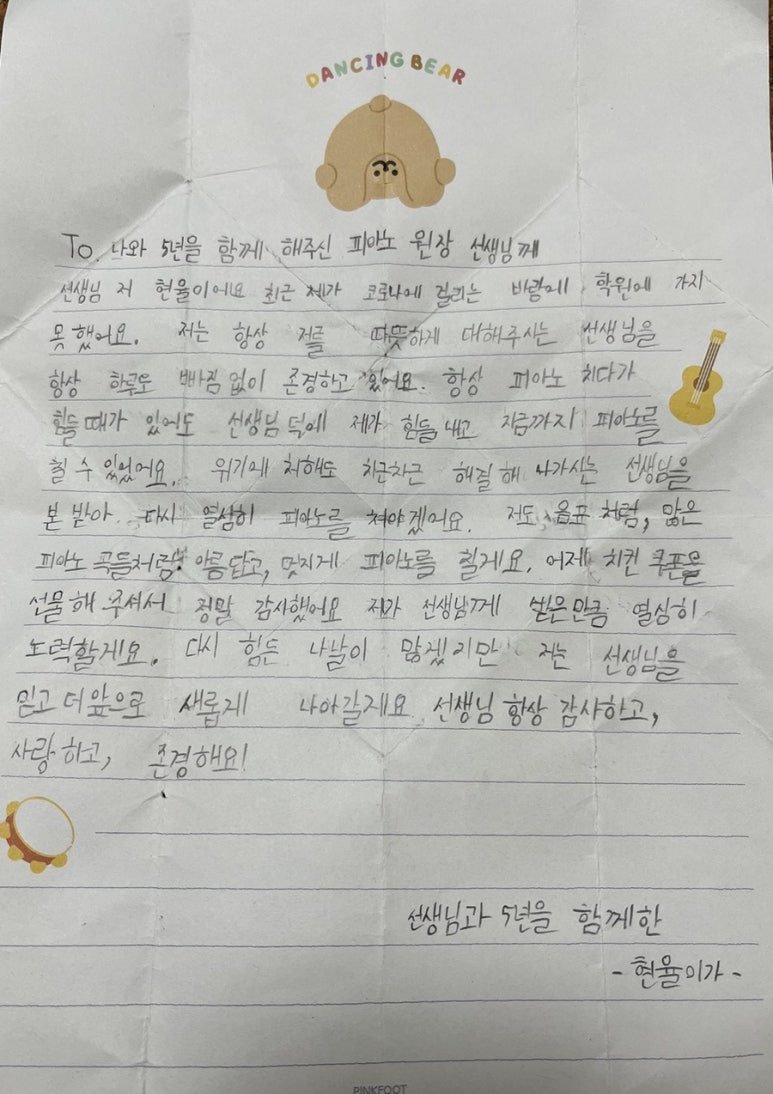 DANCING BEAR
To. 나와 5년을 함께 해주신 피아노 원장 선생님께
선생님 저 현율이에요 최근 제가 코로나에 걸리는 바람에 학원에 가지
못 했어요. 저는 항상 저를 따뜻하게 대해주시는 선생님을
항상 하루도 빠짐 없이 존경하고 있어요. 항상 피아노 치다가
힘들 때가 있어도 선생님 덕에 제가 힘들 내고 지금까지 피아노를
칠 수 있었어요. 위기에 처해도 차근차근 해결 해 나가시는 선생님을
본 받아 다시 열심히 피아노를 쳐야겠어요. 저도 음표 처럼, 많은
피아노 곡들처럼 아름답고, 멋지게 피아노를 칠게요. 어제 치킨 쿠폰을
선물 해 주셔서 정말 감사했어요 제가 선생님께 받은 만큼 열심히
노력할게요. 다시 힘든 나날이 많겠지만 저는 선생님을
믿고 더 앞으로 새롭게 나아갈게요 선생님 항상 감사하고,
사랑하고, 존경해요!
선생님과 5년을 함께한
- 현율이가 -
PINKFOOT